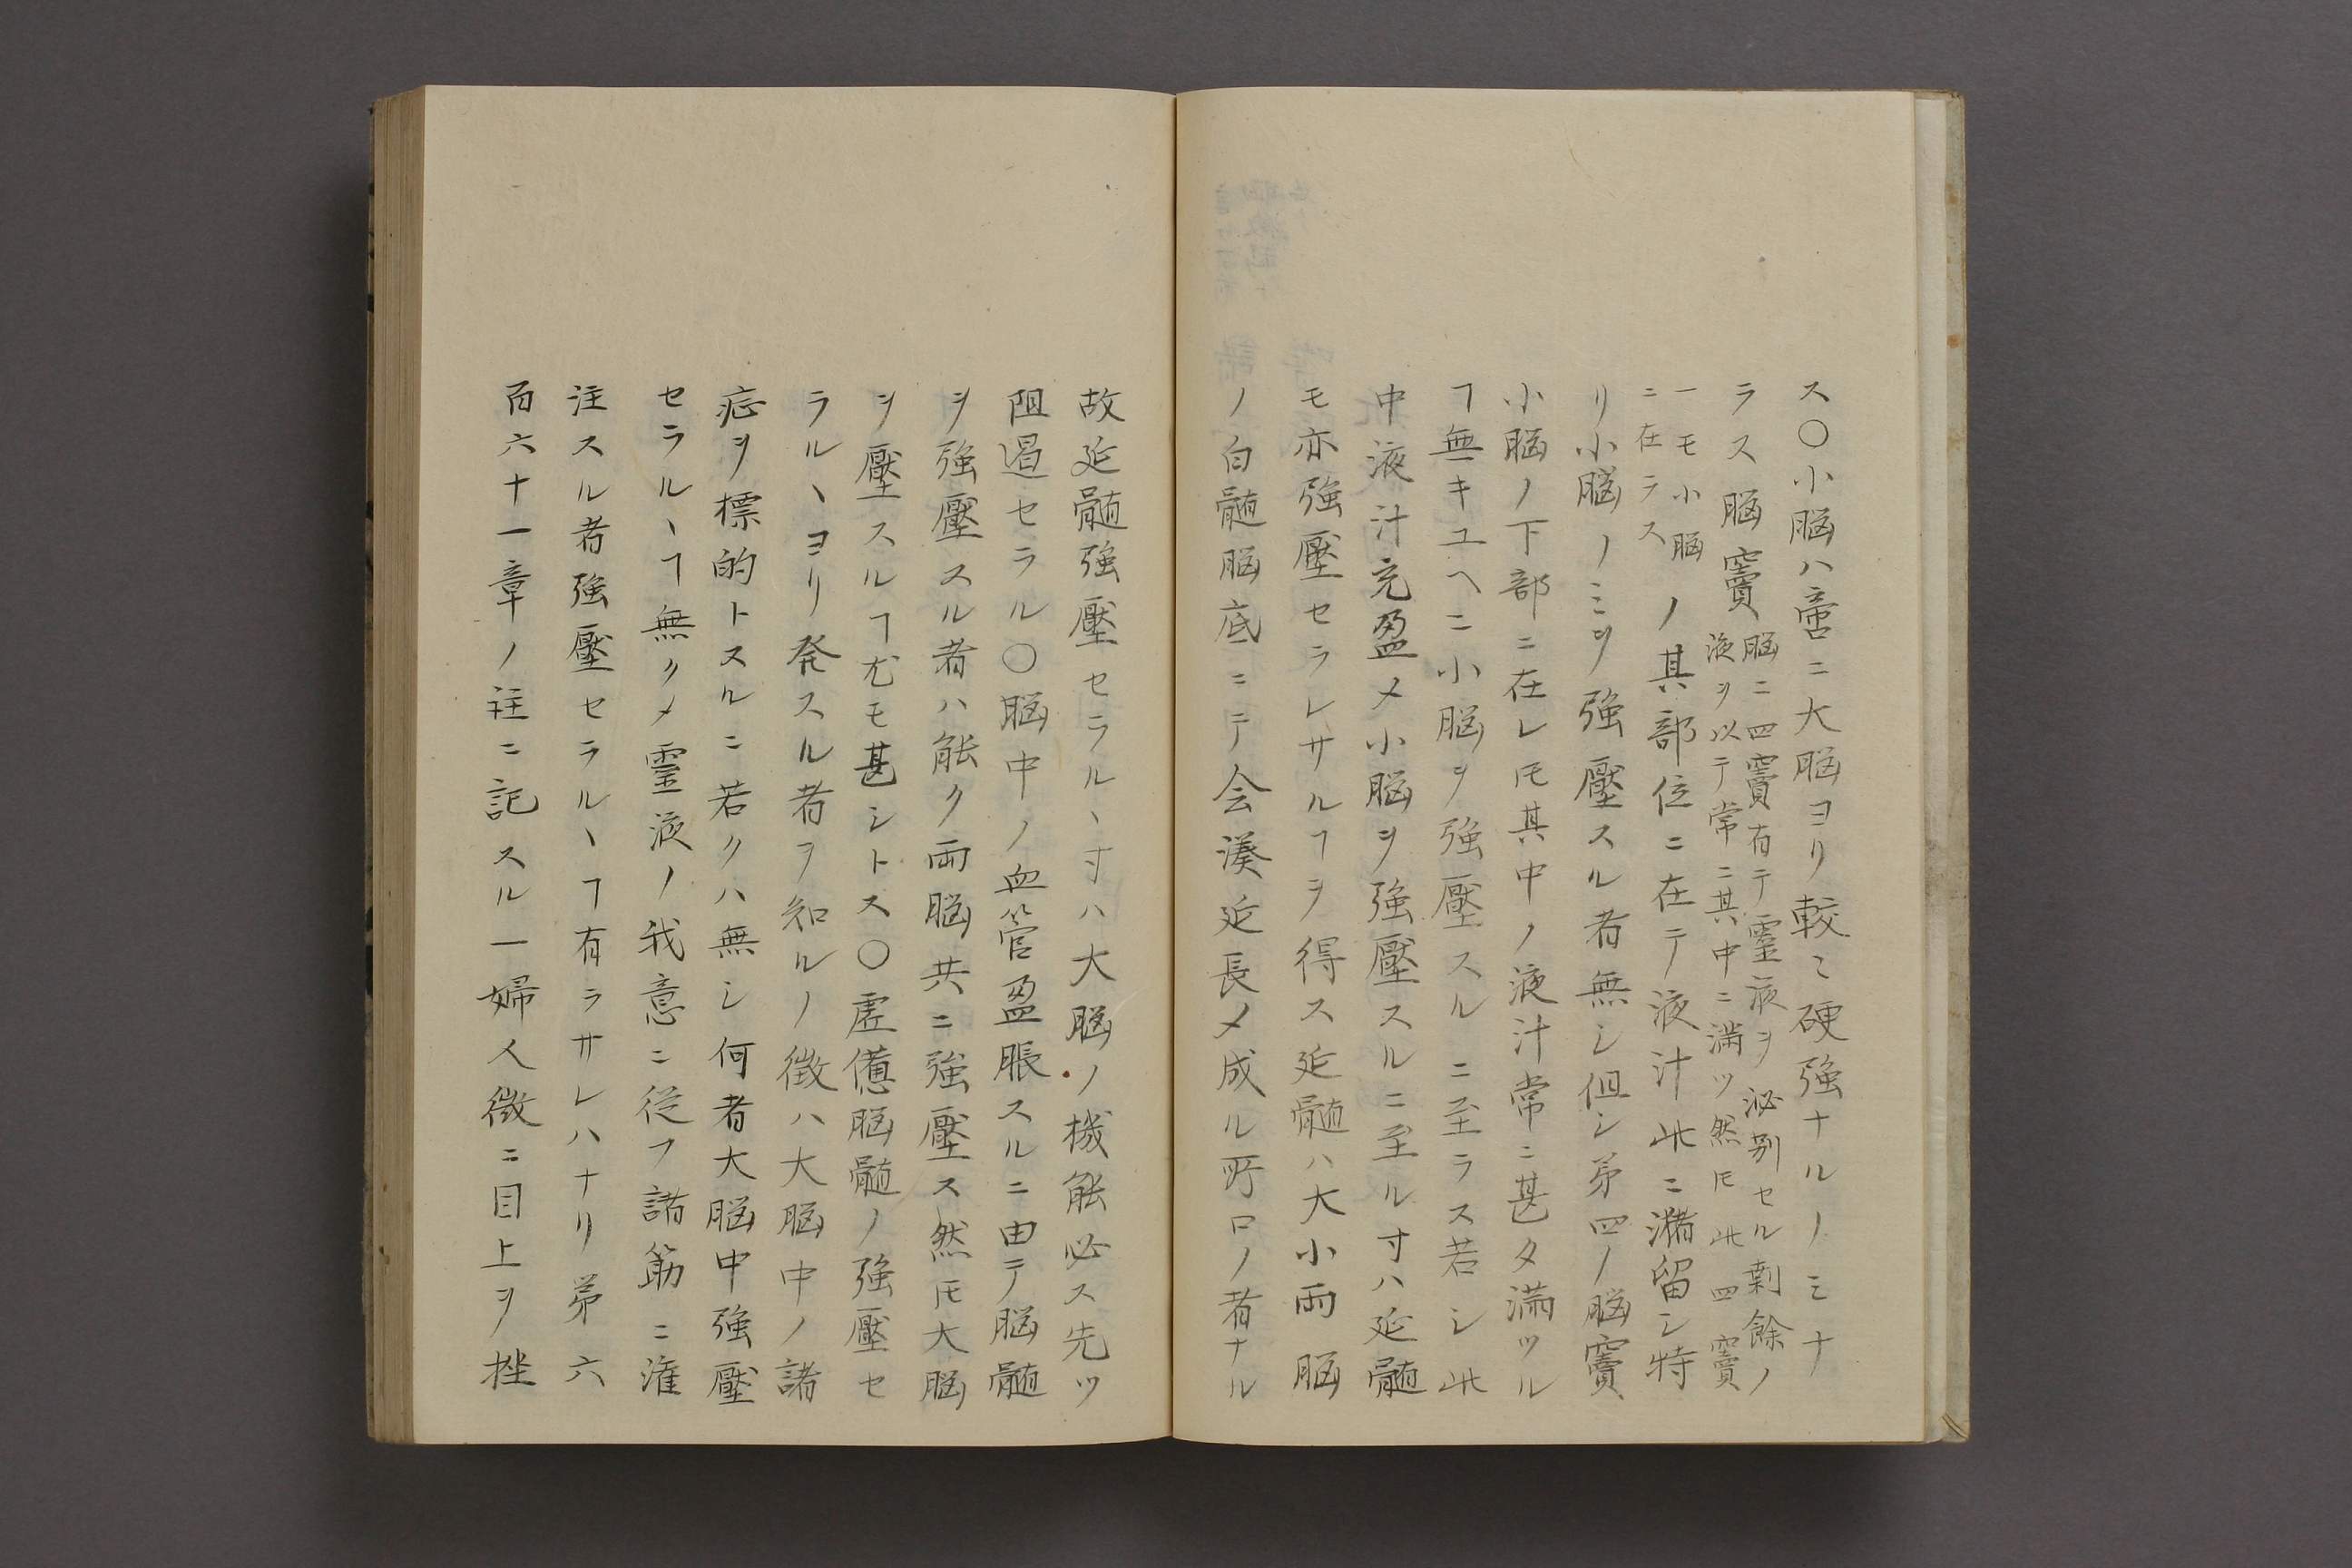 ス〇小脳ハ啻ニ大脳ヨリ較ミ硬強ナルノミナ
ラス脳竇
脳ニ四竇有テ霊液ヲ泌別セル剰餘ノ
液ヲ以テ常ニ其中ニ満ツ然𪜈此四竇
一モ小脳
ニ在ラス
ノ其部位ニ在テ液汁此ニ瀦留シ特
リ小脳ノミヲ強壓スル者無シ但シ第四ノ脳竇
小脳ノ下部ニ在レ𪜈其中ノ液汁常ニ甚タ満ツル
ヿ無キユヘニ小脳ヲ強壓スルニ至ラス若シ此
中液汁充盈〆小脳ヲ強壓スルニ至ル寸ハ延髄
モ亦強壓セラレサルヿヲ得ス延髄ハ大小両脳
ノ白髄脳底ニテ会湊延長〆成ル所ロノ者ナル
故延髄強壓セラルヽ寸ハ大脳ノ機能必ス先ツ
阻遏セラル〇脳中ノ血管盈脹スルニ由テ脳髄
ヲ強壓スル者ハ能ク両脳共ニ強壓ス然𪜈大脳
ヲ壓スルヿ尤モ甚シトス〇虚憊脳髄ノ強壓セ
ラルヽヨリ発スル者ヲ知ルノ徴ハ大脳中ノ諸
症ヲ標的トスルニ若クハ無シ何者大脳中強壓
セラルヽヿ無ク〆霊液ノ我意ニ従フ諸筋ニ潅
注スル者強壓セラルヽヿ有ラサレハナリ第六
百六十一章ノ註ニ記スル一婦人徴ニ目上ヲ挫